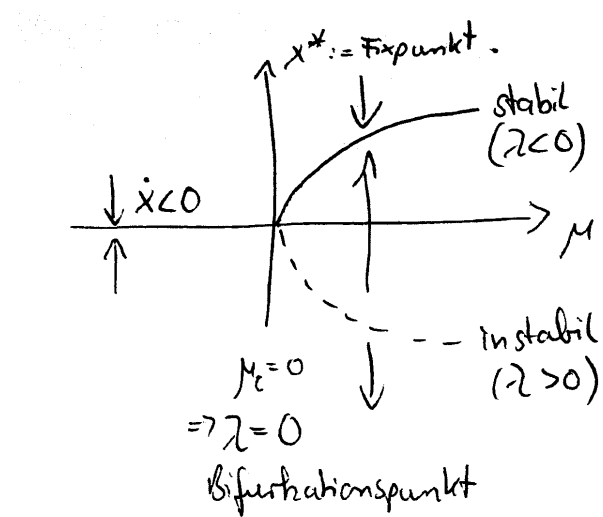 x* := Fixpunkt.
stabil
(λ<0)
ẋ<0
μ
instabil
(λ>0)
μc=0
=> λ=0
Bifurkationspunkt